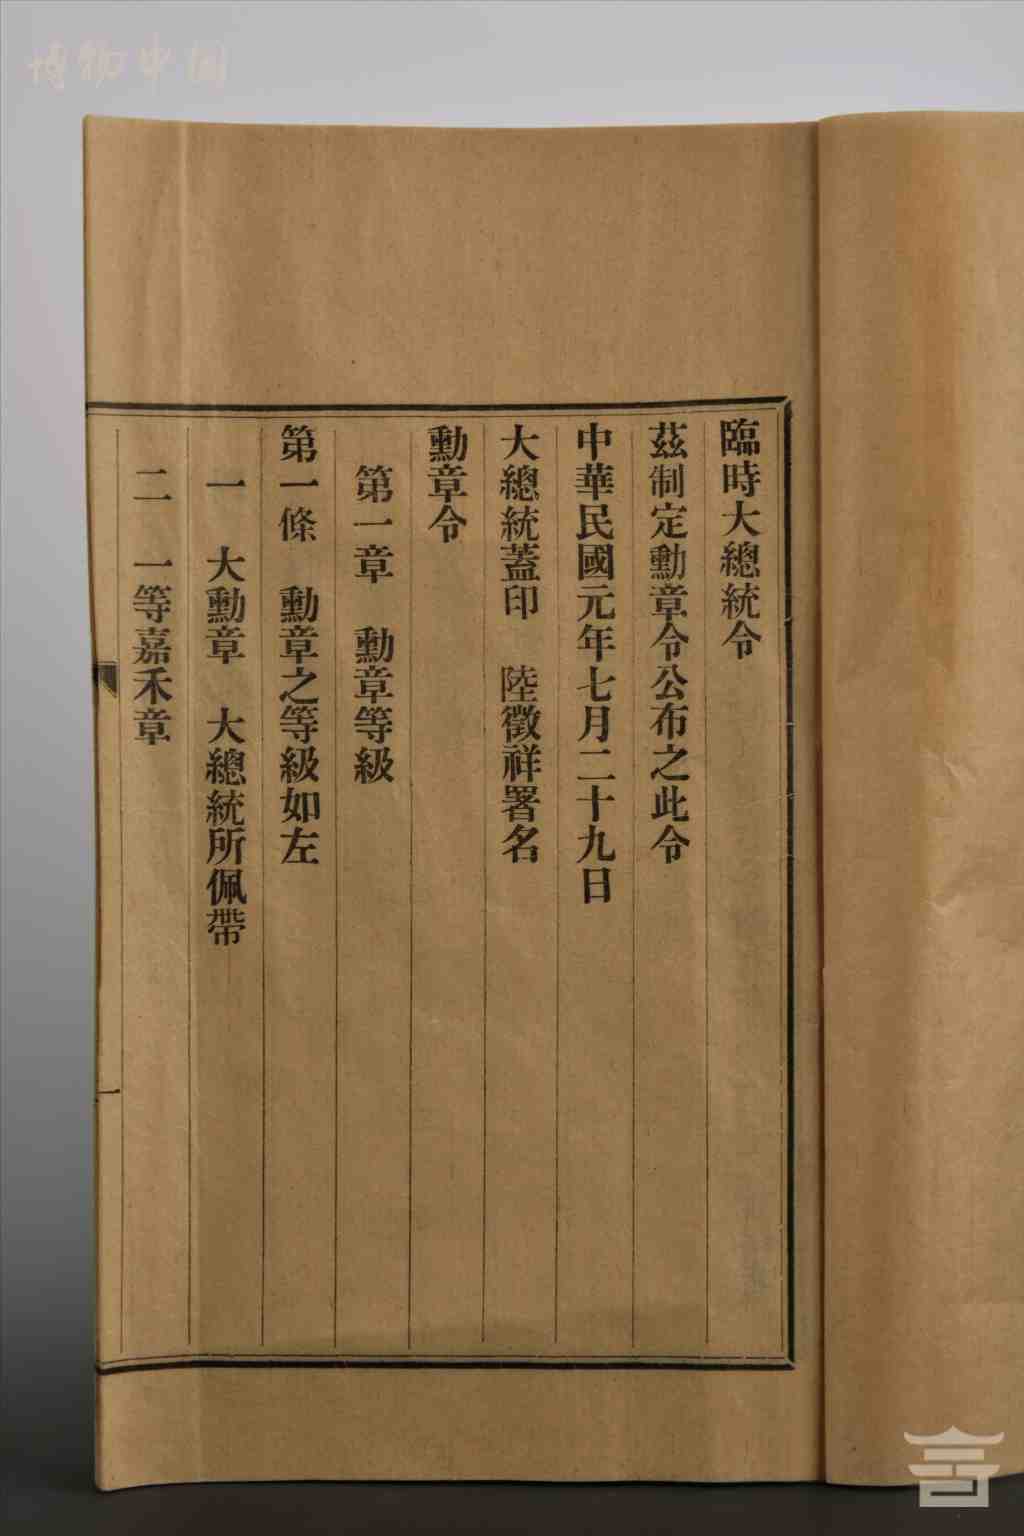 博物中国
臨時大總統令
茲制定勳章令公布之此令
中華民國元年七月二十九日
大總統蓋印　陸徵祥署名
勳章令
第一章　勳章等級
第一條　勳章之等級如左
一　大勳章　大總統所佩帶
二　一等嘉禾章
一